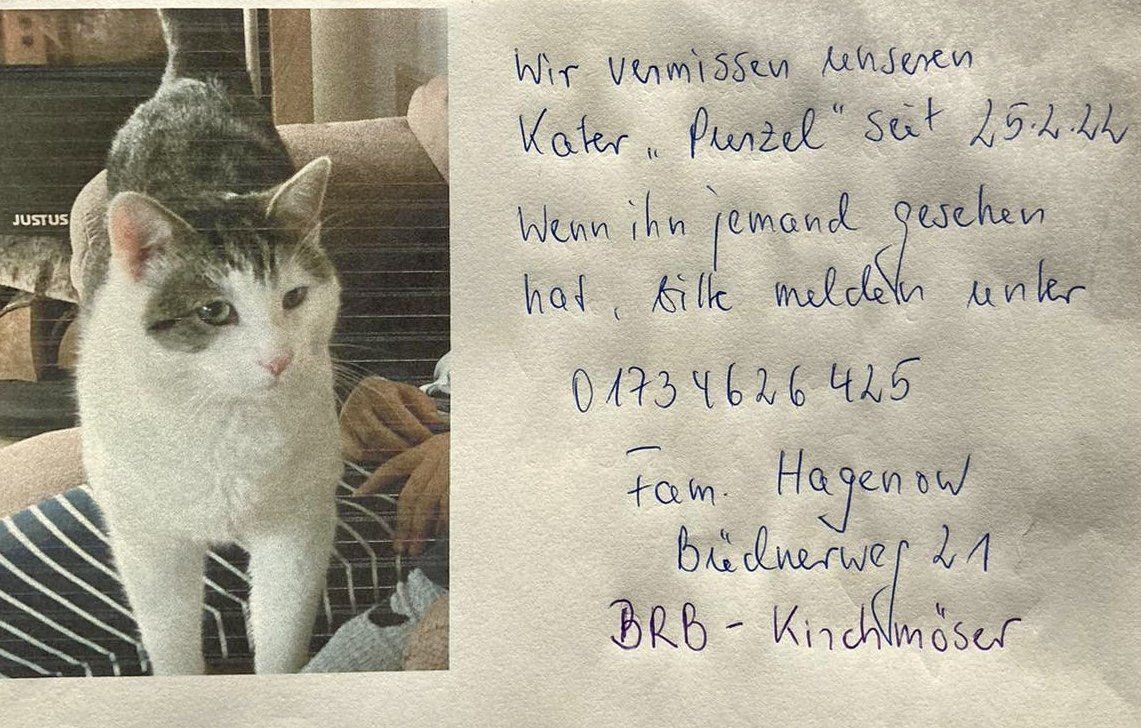 JUSTUS
Wir vermissen unseren
Kater „Punzel“ seit 25.2.22
Wenn ihn jemand gesehen
hat, bitte melden unter
0173 4626 425
Fam. Hagenow
Büdnerweg 21
BRB - Kirchmöser